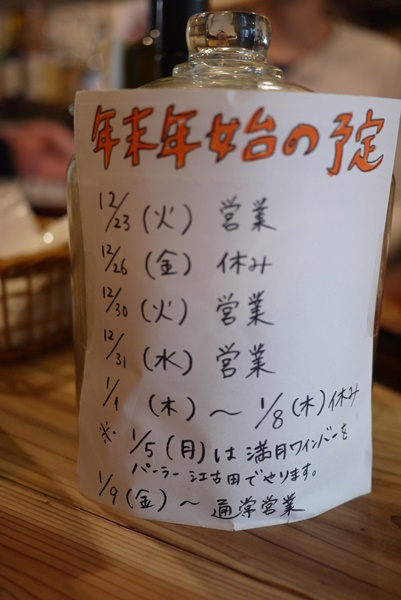 年末年始の予定
12/23 (火) 営業
12/26 (金) 休み
12/30 (火) 営業
12/31 (水) 営業
1/1 (木) 〜 1/8 (木) 休み
※ 1/5 (月) は 満月ワインバーを
パーラー江古田でやります。
1/9 (金) 〜 通常営業